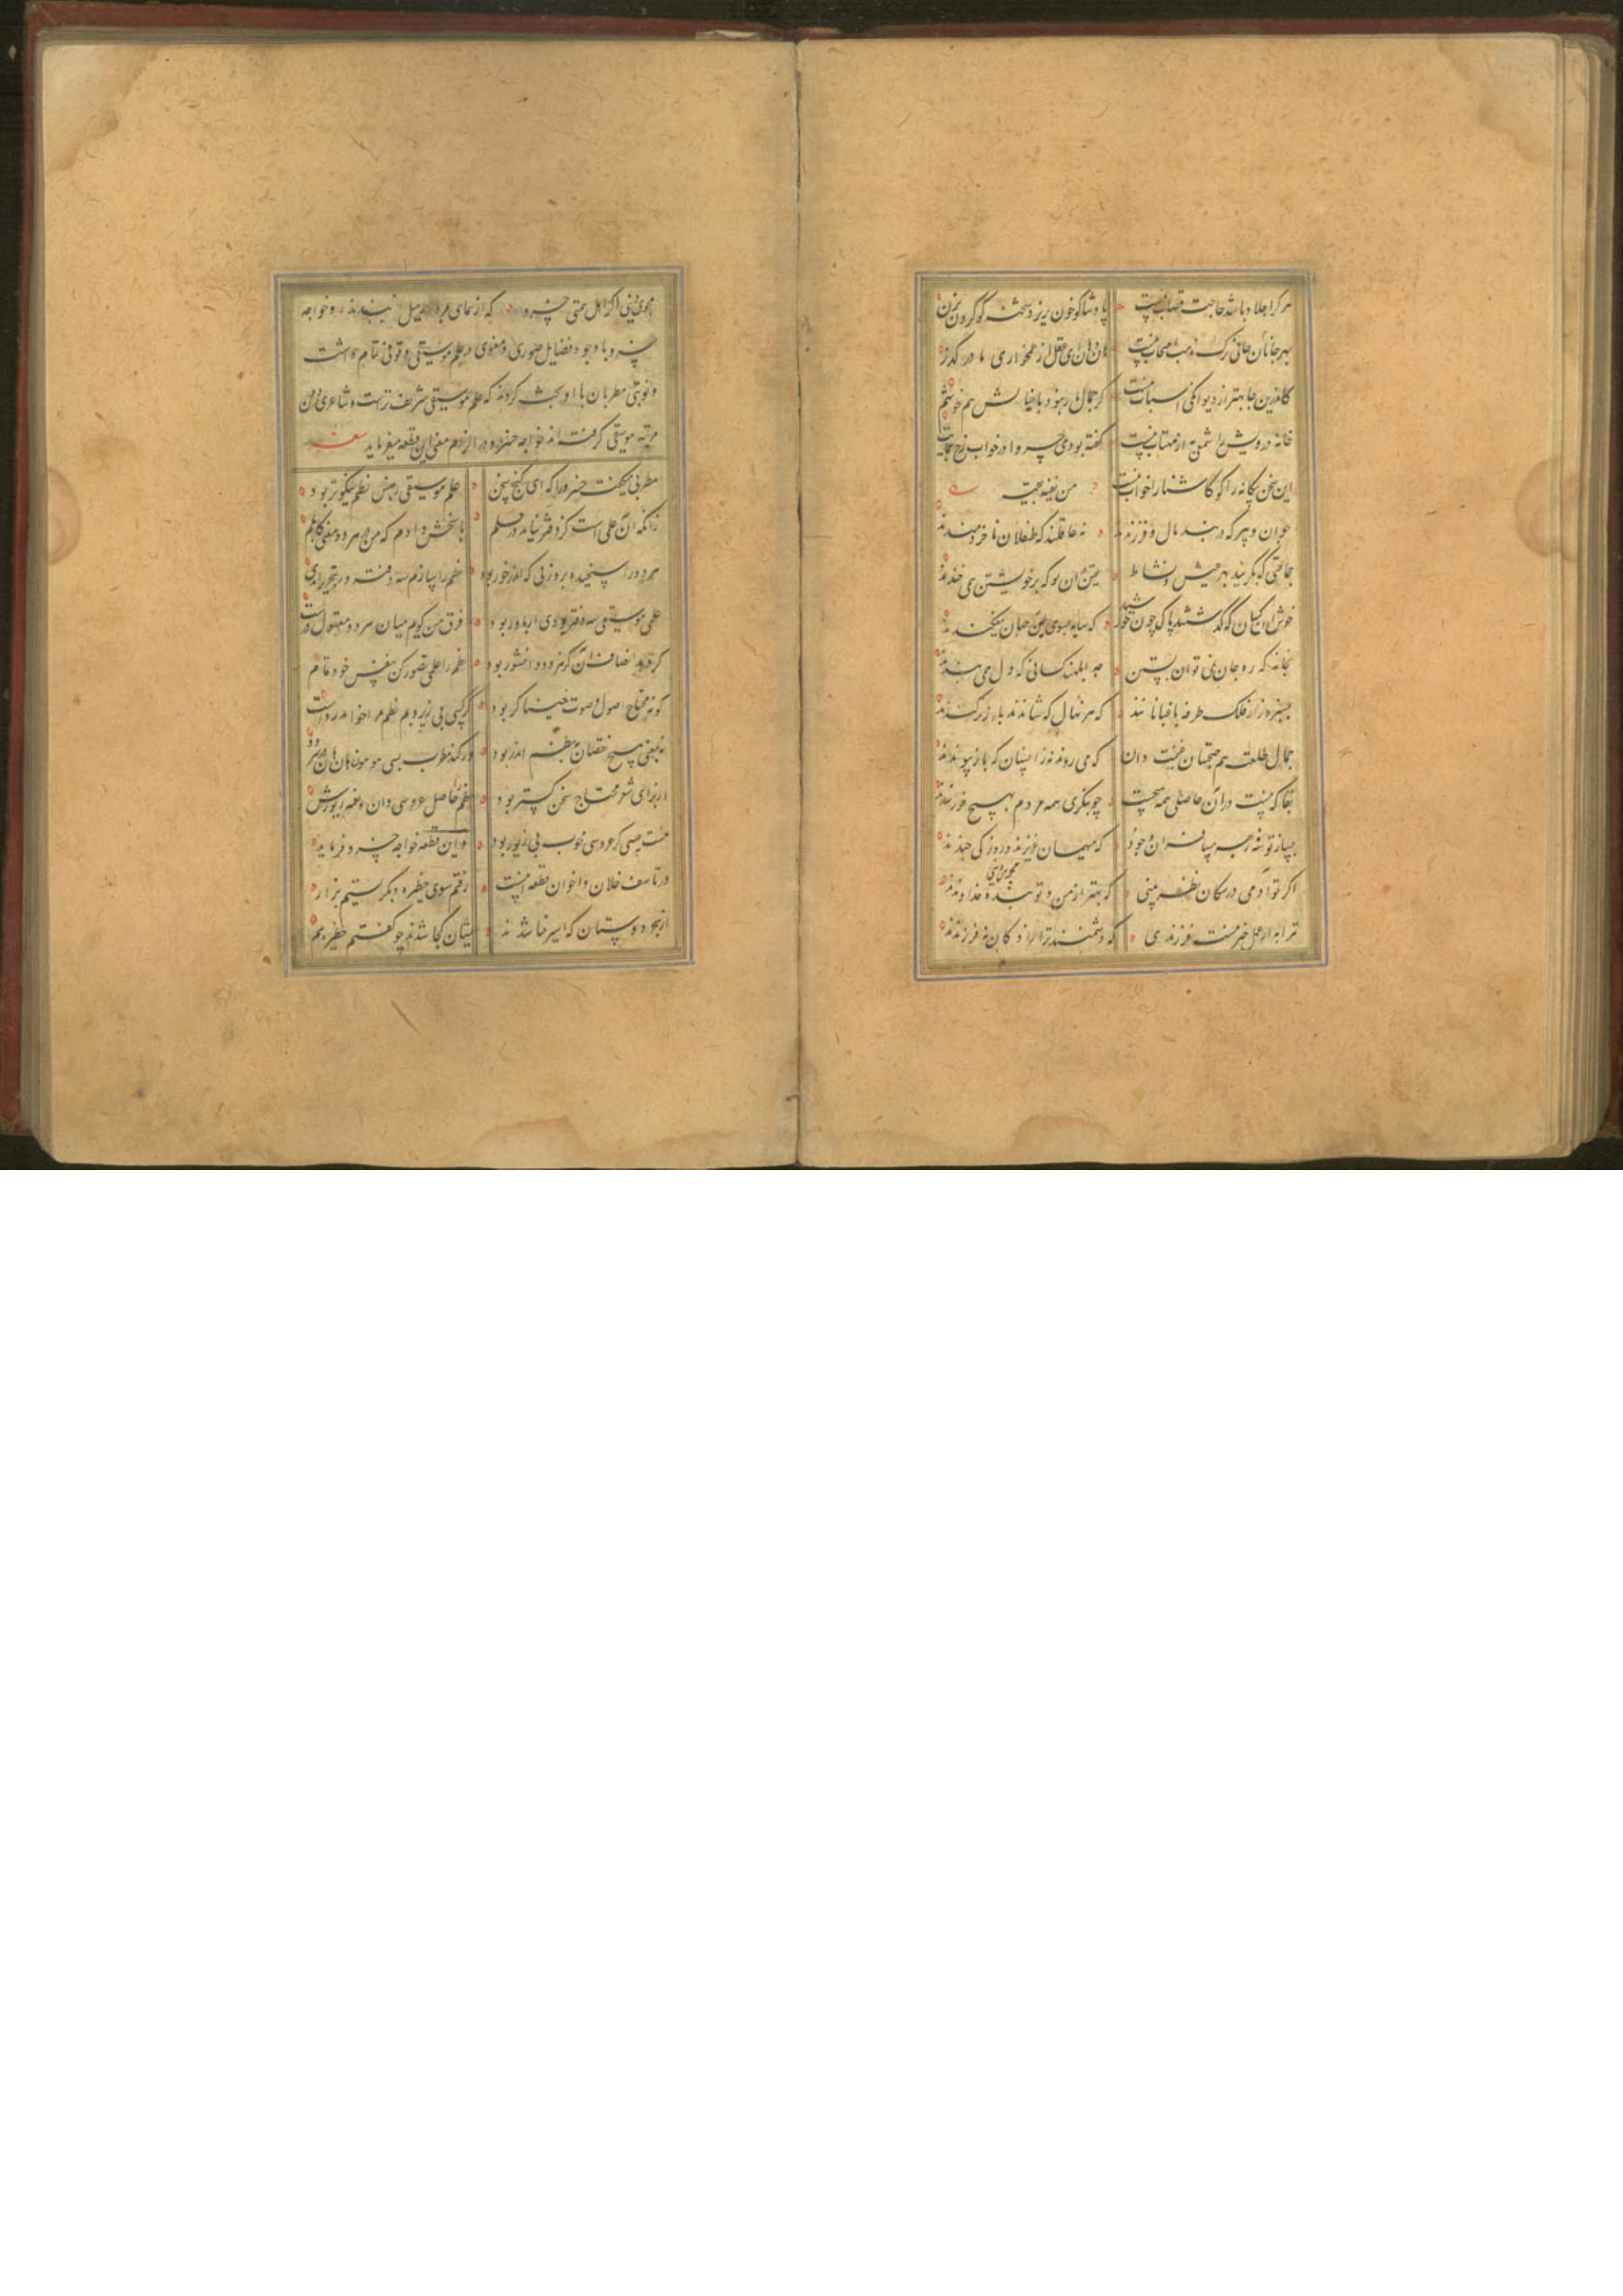 هر کرا جلاد باشد حاجت قصاب نیست پادشا کو خون بریز و شحنه کو گردن بزن
بهر جانان جانی ترک مذهب اصحاب نیست هان و هان ای عقل از غمخواری ما در گذر
کاندرین جا بهتر از دیوانگی اسباب نیست گر جمال یار نبود با خیالش هم خوشم
خانه درویش را شمعی به از مهتاب نیست گفته بودی خسروا در خواب رخ بنمایمت
این سخن بیگانه را گو کاشنا را خواب نیست من
جوان و پیر که در بند مال و فرزندند نه عاقلند که طفلان ناخردمندند
جماعتی که بگریند بهر عیش و نشاط یقین دان تو که بر خویشتن می خندند
خوش آن کسان که گذشتند پاک چون خورشید که سایه بسوی این جهان نیفکندند
بخانه که ره جان نمی توان بستن چه ابلهند کسانی که دل می بندند
بسبزه زار فلک طرفه باغبانانند که هر نهال که شاندند باز برکندند
جمال طلعت هم صحبتان غنیمت دان که می روند نه زانسان که باز پیوندند
بقا که نیست در آن حاصلی همه هیچست چو بنگری همه مردم بهیچ خرسندند
بساز توشه ز بهر مسافران وجود که میهمان عزیزند و روزکی چندند
اگر تو آدمی در سگان بطنز مبین که بهتر از من و تو بنده خداوندند
ترا به از عمل خیر نیست فرزندی که دشمنند ترا زادگان نه فرزندند
مجوی دنیی اگر اهل همتی خسرو که از همای مردار میل نپسندند و خواجه
خسرو با وجود فضایل صوری و معنوی در علم موسیقی وقوفی تمام داشت
و نوبتی مطربان با او بحث کردند که علم موسیقی شریف ترست و شاعری دون
مرتبه موسیقی گرفته اند خواجه خسرو در الزام مغنی این قطعه میفرماید
مطربی میگفت خسرو را که ای گنج سخن علم موسیقی ز جنس نظم نیکوتر بود
زانکه آن علمی است کز دقت نیاید در قلم پاسخش دادم که من در هر دو معنی کاملم
هر دو را سنجیده بر وزنی که اندر خور بود نظم را سازم سه دفتر ور بتحریر آمدی
علم موسیقی سه دفتر بودی ار باور بود فرق من گویم میان هر دو معقول و درست
گر دهد انصاف آن کز هر دو دانشور بود نظم را علمی تصور کن بنفس خود تمام
کو نه محتاج اصول و صوت خنیاگر بود گر کسی بی زیر و بم نظمی فرو خواند رواست
نه بمعنی هیچ نقصان نه بنظم اندر بود ور کند مطرب بسی هوهو و هاها در سرود
از برای شعر محتاج سخن گستر بود نظم را حاصل عروسی دان و نغمه زیورش
نیست عیبی گر عروسی خوب بی زیور بود و این قطعه خواجه خسرو فرماید
در تاسف خلان و اخوان قطعه اینست رفتم سوی حظیره و بگریستم بزار
از هجر دوستان که اسیر فنا شدند ایشان کجا شدند چو گفتم حظیره هم